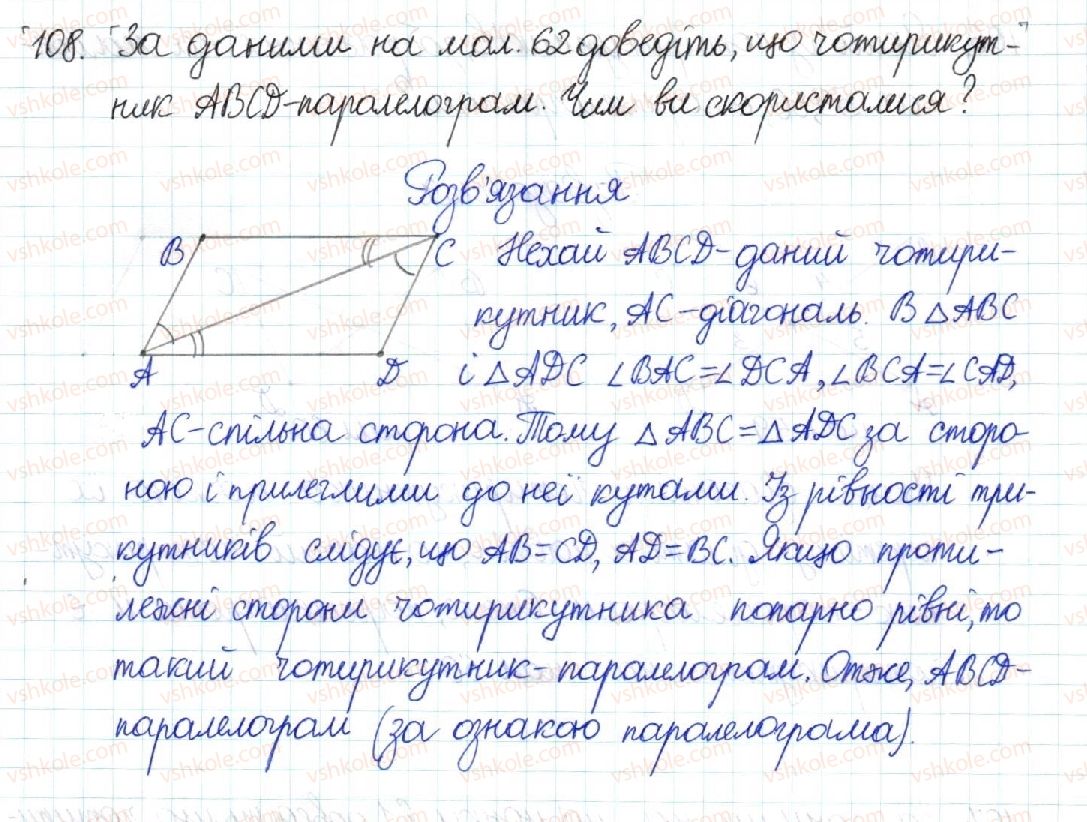 108. За даними на мал. 62 доведіть, що чотирикут-
ник ABCD-паралелограм. Чим ви скористалися?
Розв'язання
B
C
A
D
Нехай ABCD-даний чотири-
кутник, AC-діагональ. В △ABC
і △ADC ∠BAC=∠DCA, ∠BCA=∠CAD,
AC-спільна сторона. Тому △ABC=△ADC за сторо-
ною і прилеглими до неї кутами. Із рівності три-
кутників слідує, що AB=CD, AD=BC. Якщо проти-
лежні сторони чотирикутника попарно рівні, то
такий чотирикутник-паралелограм. Отже, ABCD-
паралелограм (за ознакою паралелограма).
vshkole.com